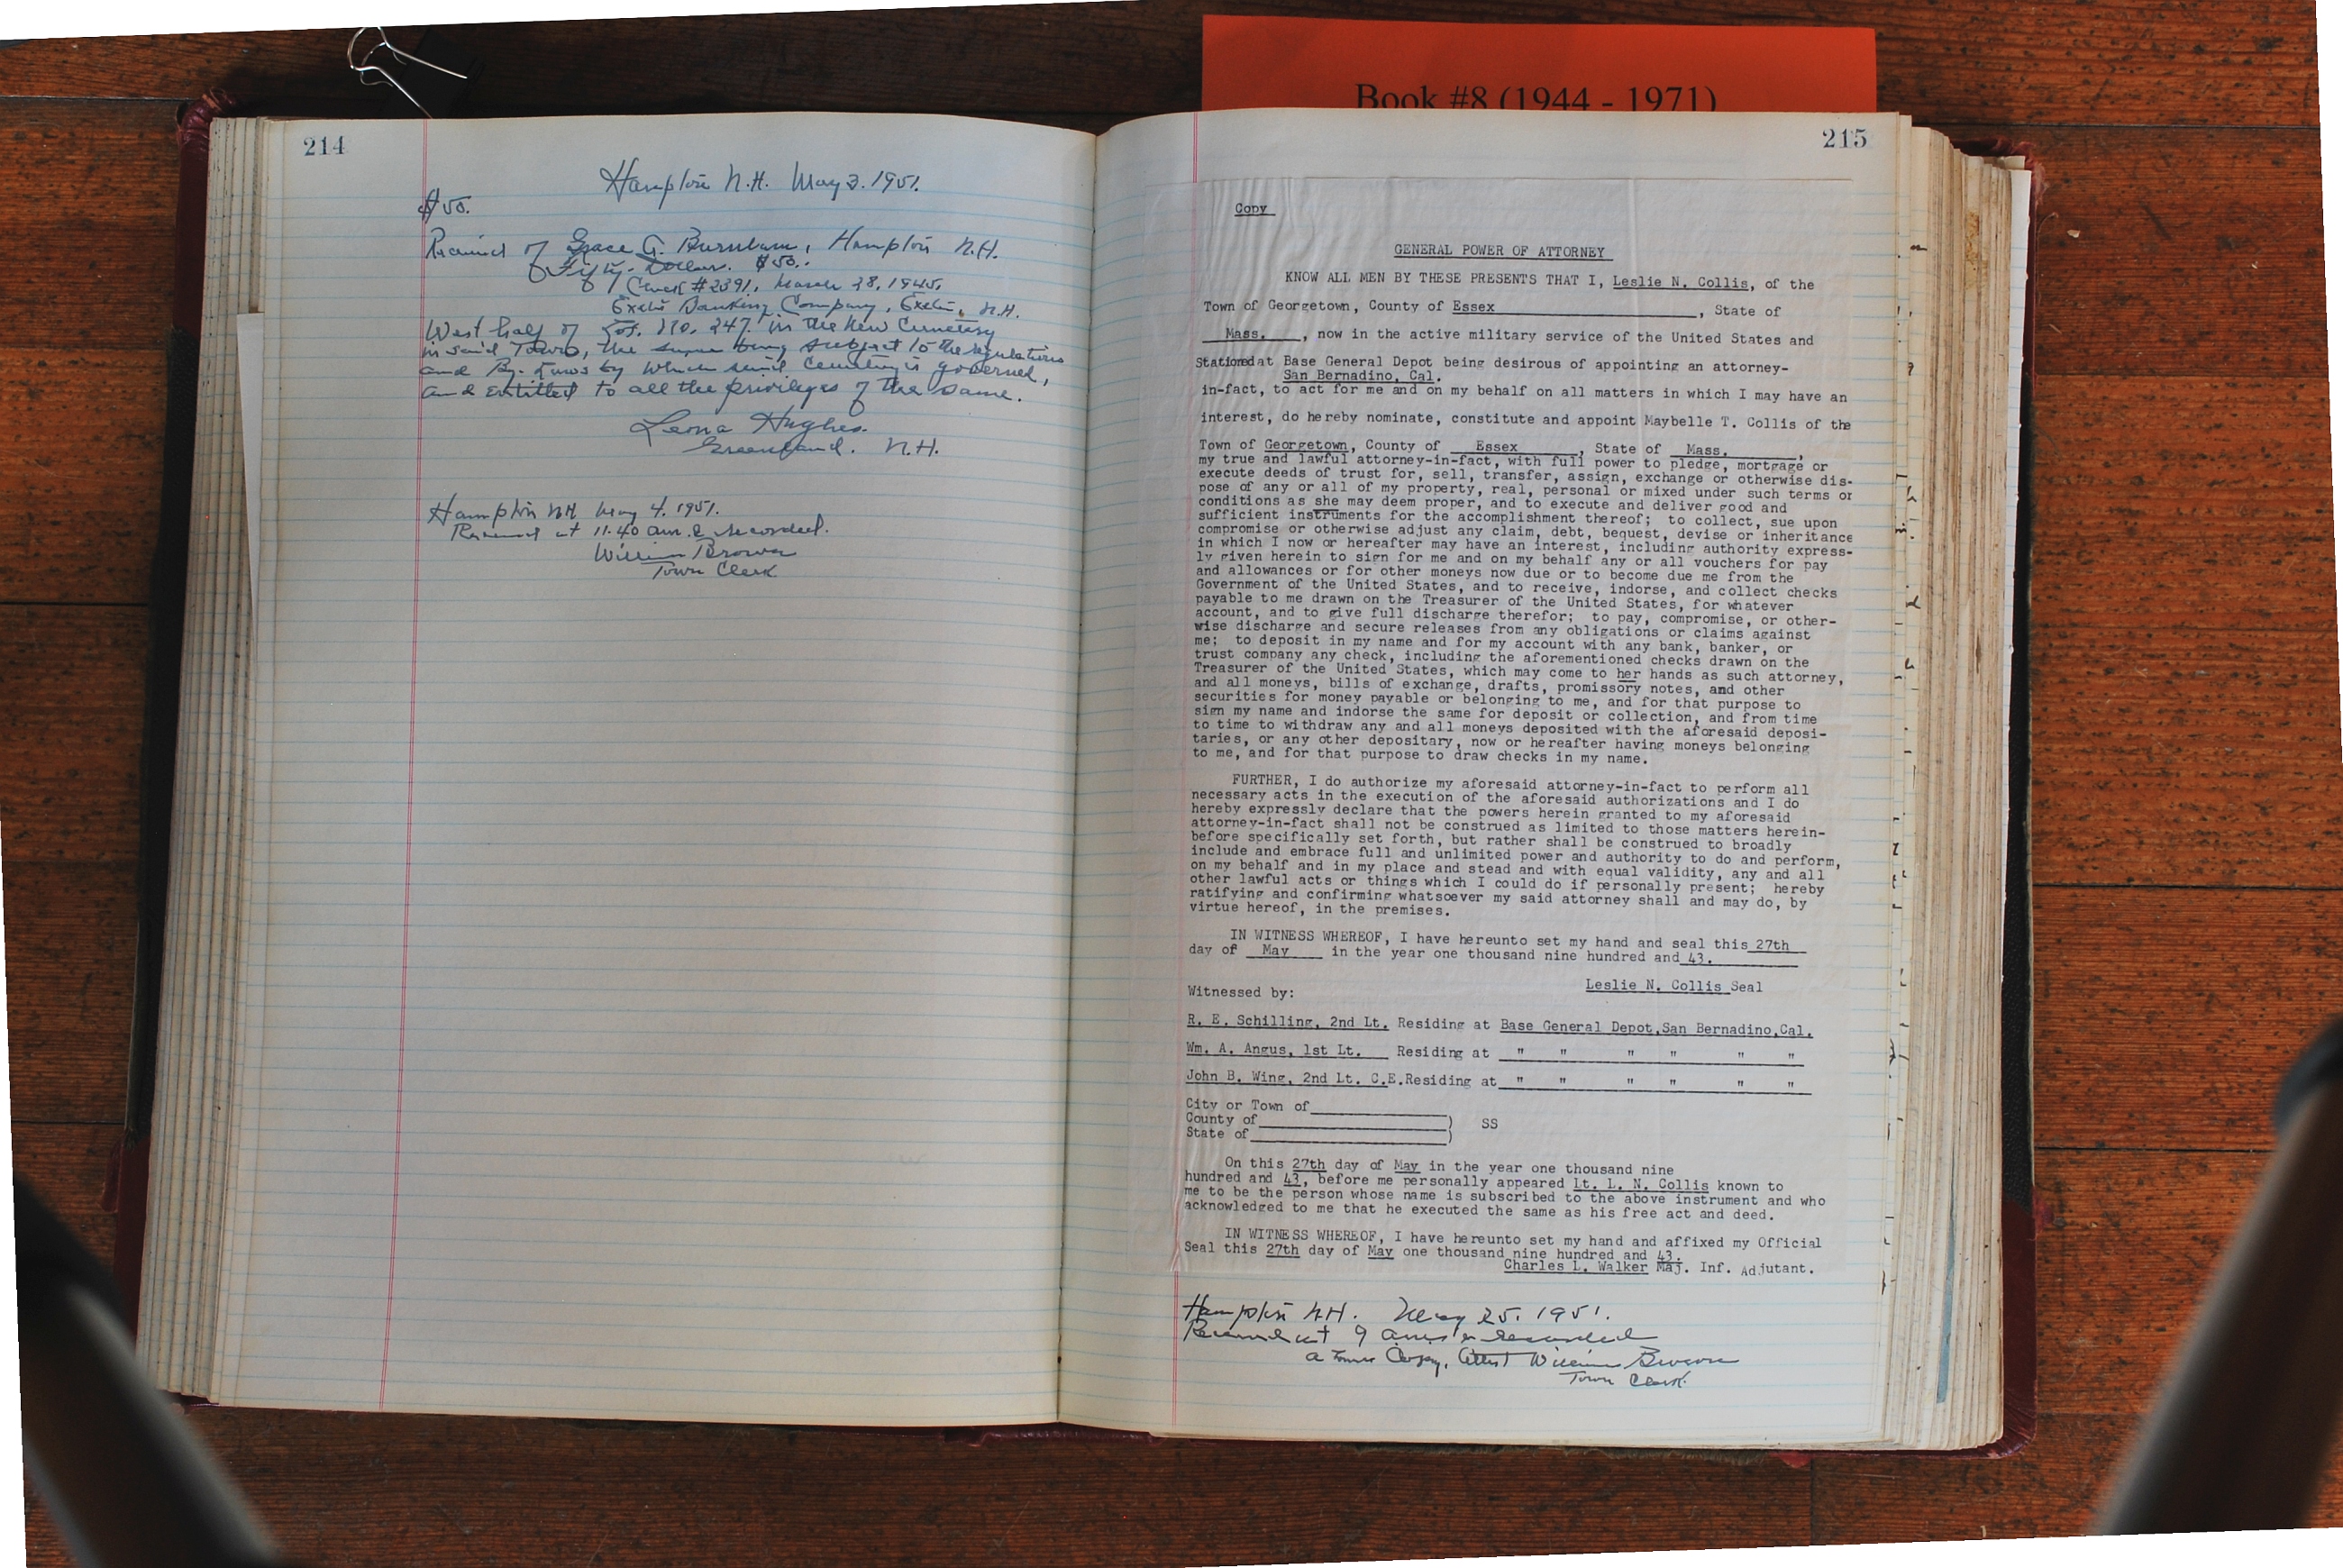 Book #8 (1944 - 1971)
214
Hampton N.H. May 3. 1951.
$50.
Received of Grace G. Burnham, Hampton N.H.
Fifty Dollars. $50..
Check #2391, March 28, 1945,
Exeter Banking Company, Exeter, N.H.
West half of Lot. No. 247 in the New Cemetery
in said Town, the same being subject to the regulations
and By-Laws by which said Cemetery is governed,
and entitled to all the privileges of the same.
Leona Hughes.
Greenland. N.H.
Hampton NH May 4. 1951.
Received at 11.40 am. & recorded.
William Brown
Town Clerk
215
Copy
GENERAL POWER OF ATTORNEY
KNOW ALL MEN BY THESE PRESENTS THAT I, Leslie N. Collis, of the
Town of Georgetown, County of Essex, State of
Mass. , now in the active military service of the United States and
Stationed at Base General Depot being desirous of appointing an attorney-
San Bernadino, Cal.
in-fact, to act for me and on my behalf on all matters in which I may have an
interest, do hereby nominate, constitute and appoint Maybelle T. Collis of the
Town of Georgetown, County of Essex, State of Mass.,
my true and lawful attorney-in-fact, with full power to pledge, mortgage or
execute deeds of trust for, sell, transfer, assign, exchange or otherwise dis-
pose of any or all of my property, real, personal or mixed under such terms or
conditions as she may deem proper, and to execute and deliver good and
sufficient instruments for the accomplishment thereof; to collect, sue upon
compromise or otherwise adjust any claim, debt, bequest, devise or inheritance
in which I now or hereafter may have an interest, including authority express-
ly given herein to sign for me and on my behalf any or all vouchers for pay
and allowances or for other moneys now due or to become due me from the
Government of the United States, and to receive, indorse, and collect checks
payable to me drawn on the Treasurer of the United States, for whatever
account, and to give full discharge therefor; to pay, compromise, or other-
wise discharge and secure releases from any obligations or claims against
me; to deposit in my name and for my account with any bank, banker, or
trust company any check, including the aforementioned checks drawn on the
Treasurer of the United States, which may come to her hands as such attorney,
and all moneys, bills of exchange, drafts, promissory notes, and other
securities for money payable or belonging to me, and for that purpose to
sign my name and indorse the same for deposit or collection, and from time
to time to withdraw any and all moneys deposited with the aforesaid deposi-
taries, or any other depositary, now or hereafter having moneys belonging
to me, and for that purpose to draw checks in my name.
FURTHER, I do authorize my aforesaid attorney-in-fact to perform all
necessary acts in the execution of the aforesaid authorizations and I do
hereby expressly declare that the powers herein granted to my aforesaid
attorney-in-fact shall not be construed as limited to those matters herein-
before specifically set forth, but rather shall be construed to broadly
include and embrace full and unlimited power and authority to do and perform,
on my behalf and in my place and stead and with equal validity, any and all
other lawful acts or things which I could do if personally present; hereby
ratifying and confirming whatsoever my said attorney shall and may do, by
virtue hereof, in the premises.
IN WITNESS WHEREOF, I have hereunto set my hand and seal this 27th
day of May in the year one thousand nine hundred and 43.
Leslie N. Collis Seal
Witnessed by:
R. E. Schilling, 2nd Lt. Residing at Base General Depot,San Bernadino,Cal.
Wm. A. Angus, 1st Lt. Residing at " " " " " "
John B. Wing, 2nd Lt. C.E.Residing at " " " " " "
City or Town of
County of ) SS
State of )
On this 27th day of May in the year one thousand nine
hundred and 43, before me personally appeared Lt. L. N. Collis known to
me to be the person whose name is subscribed to the above instrument and who
acknowledged to me that he executed the same as his free act and deed.
IN WITNESS WHEREOF, I have hereunto set my hand and affixed my Official
Seal this 27th day of May one thousand nine hundred and 43.
Charles L. Walker Maj. Inf. Adjutant.
Hampton N.H. May 25. 1951.
Received at 9 am & recorded
a True Copy, Attest William Brown
Town Clerk.